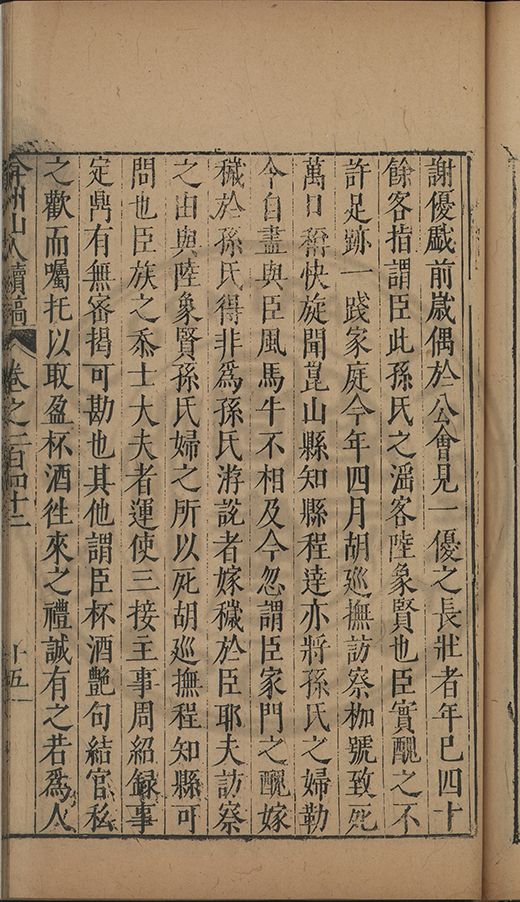 謝優戲前歲偶於公會見一優之長壯者年已四十
餘客指謂臣此孫氏之滛客陸象賢也臣實醜之不
許足跡一踐家庭今年四月胡廵撫訪察枷號致死
萬口稱快旋聞崑山縣知縣程逹亦將孫氏之婦勒
令自盡與臣風馬牛不相及今忽謂臣家門之醜嫁
穢於孫氏得非爲孫氏游説者嫁穢於臣耶夫訪察
之由與陸象賢孫氏婦之所以死胡廵撫程知縣可
問也臣族之忝士大夫者運使三接主事周紹録事
定鼎有無審揭可勘也其他謂臣杯酒艷句結官私
之歡而囑托以取盈杯酒徃來之禮誠有之若爲人
弇州山人續稿 卷之一百四十二 十五